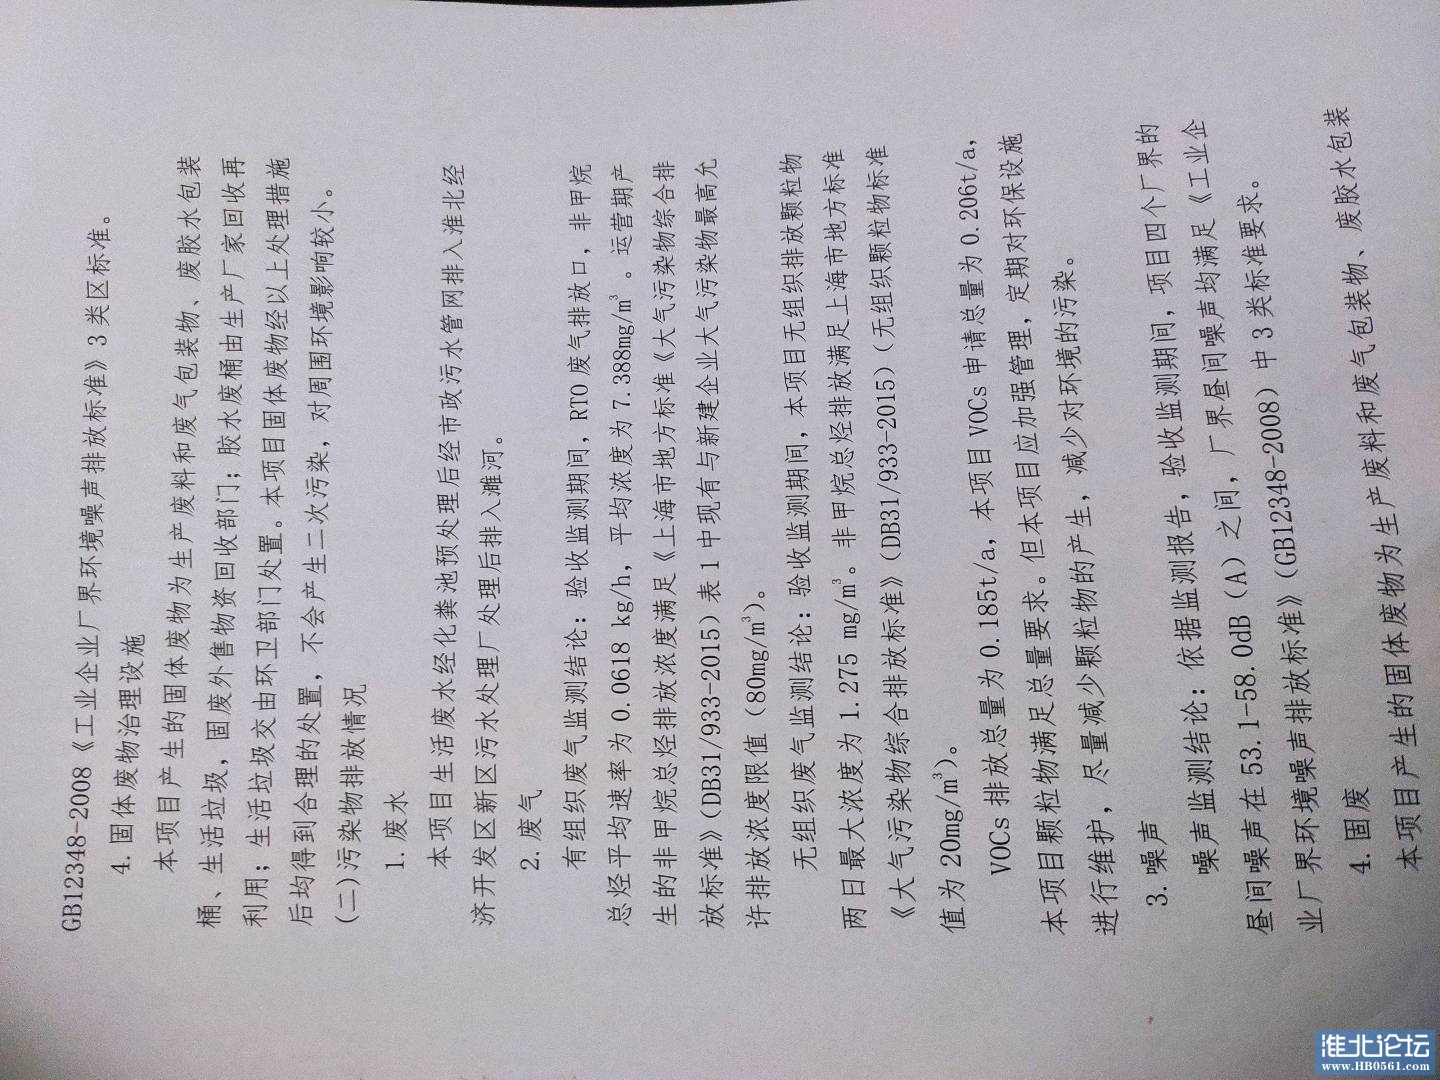 GB12348-2008《工业企业厂界环境噪声排放标准》3类区标准。
4. 固体废物治理设施
本项目产生的固体废物为生产废料和废气包装物、废胶水包装
桶、生活垃圾，固废外售物资回收部门；胶水废桶由生产厂家回收再
利用；生活垃圾交由环卫部门处置。本项目固体废物经以上处理措施
后均得到合理的处置，不会产生二次污染，对周围环境影响较小。
(二)污染物排放情况
1. 废水
本项目生活废水经化粪池预处理后经市政污水管网排入淮北经
济开发区新区污水处理厂处理后排入濉河。
2. 废气
有组织废气监测结论：验收监测期间，RTO 废气排放口，非甲烷
总烃平均速率为 0.0618 kg/h，平均浓度为 7.388mg/m³。运营期产
生的非甲烷总烃排放浓度满足《上海市地方标准《大气污染物综合排
放标准》(DB31/933-2015) 表 1 中现有与新建企业大气污染物最高允
许排放浓度限值（80mg/m³）。
无组织废气监测结论：验收监测期间，本项目无组织排放颗粒物
两日最大浓度为 1.275 mg/m³。非甲烷总烃排放满足上海市地方标准
《大气污染物综合排放标准》(DB31/933-2015)（无组织颗粒物标准
值为 20mg/m³）。
VOCs 排放总量为 0.185t/a，本项目 VOCs 申请总量为 0.206t/a，
本项目颗粒物满足总量要求。但本项目应加强管理，定期对环保设施
进行维护，尽量减少颗粒物的产生，减少对环境的污染。
3. 噪声
噪声监测结论：依据监测报告，验收监测期间，项目四个厂界的
昼间噪声在 53.1-58.0dB（A）之间，厂界昼间噪声均满足《工业企
业厂界环境噪声排放标准》（GB12348-2008）中 3 类标准要求。
4. 固废
本项目产生的固体废物为生产废料和废气包装物、废胶水包装
淮北论坛
www.HB0561.com